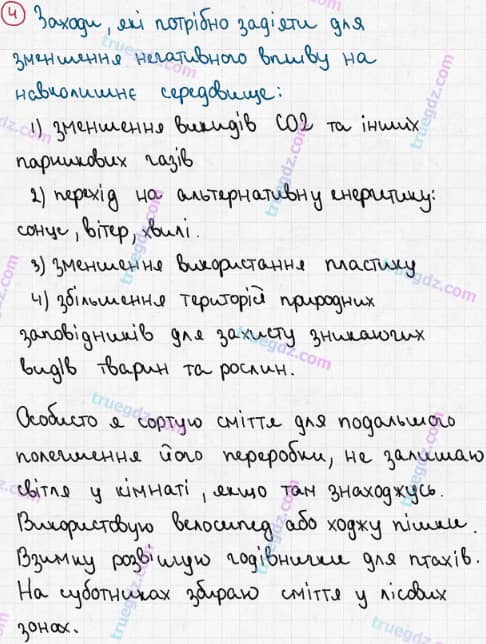 4 Заходи, які потрібно задіяти для
зменшення негативного впливу на
навколишнє середовище:
1) зменшення викидів CO2 та інших
парникових газів
2) перехід на альтернативну енергетику:
сонце, вітер, хвилі.
3) зменшення використання пластику
4) збільшення територій природних
заповідників для захисту зникаючих
видів тварин та рослин.
Особисто я сортую сміття для подальшого
полегшення його переробки, не залишаю
світла у кімнаті, якщо там знаходжусь.
Використовую велосипед або ходжу пішки.
Взимку розвішую годівнички для птахів.
На суботниках збираю сміття у лісових
зонах.
truegdz.com